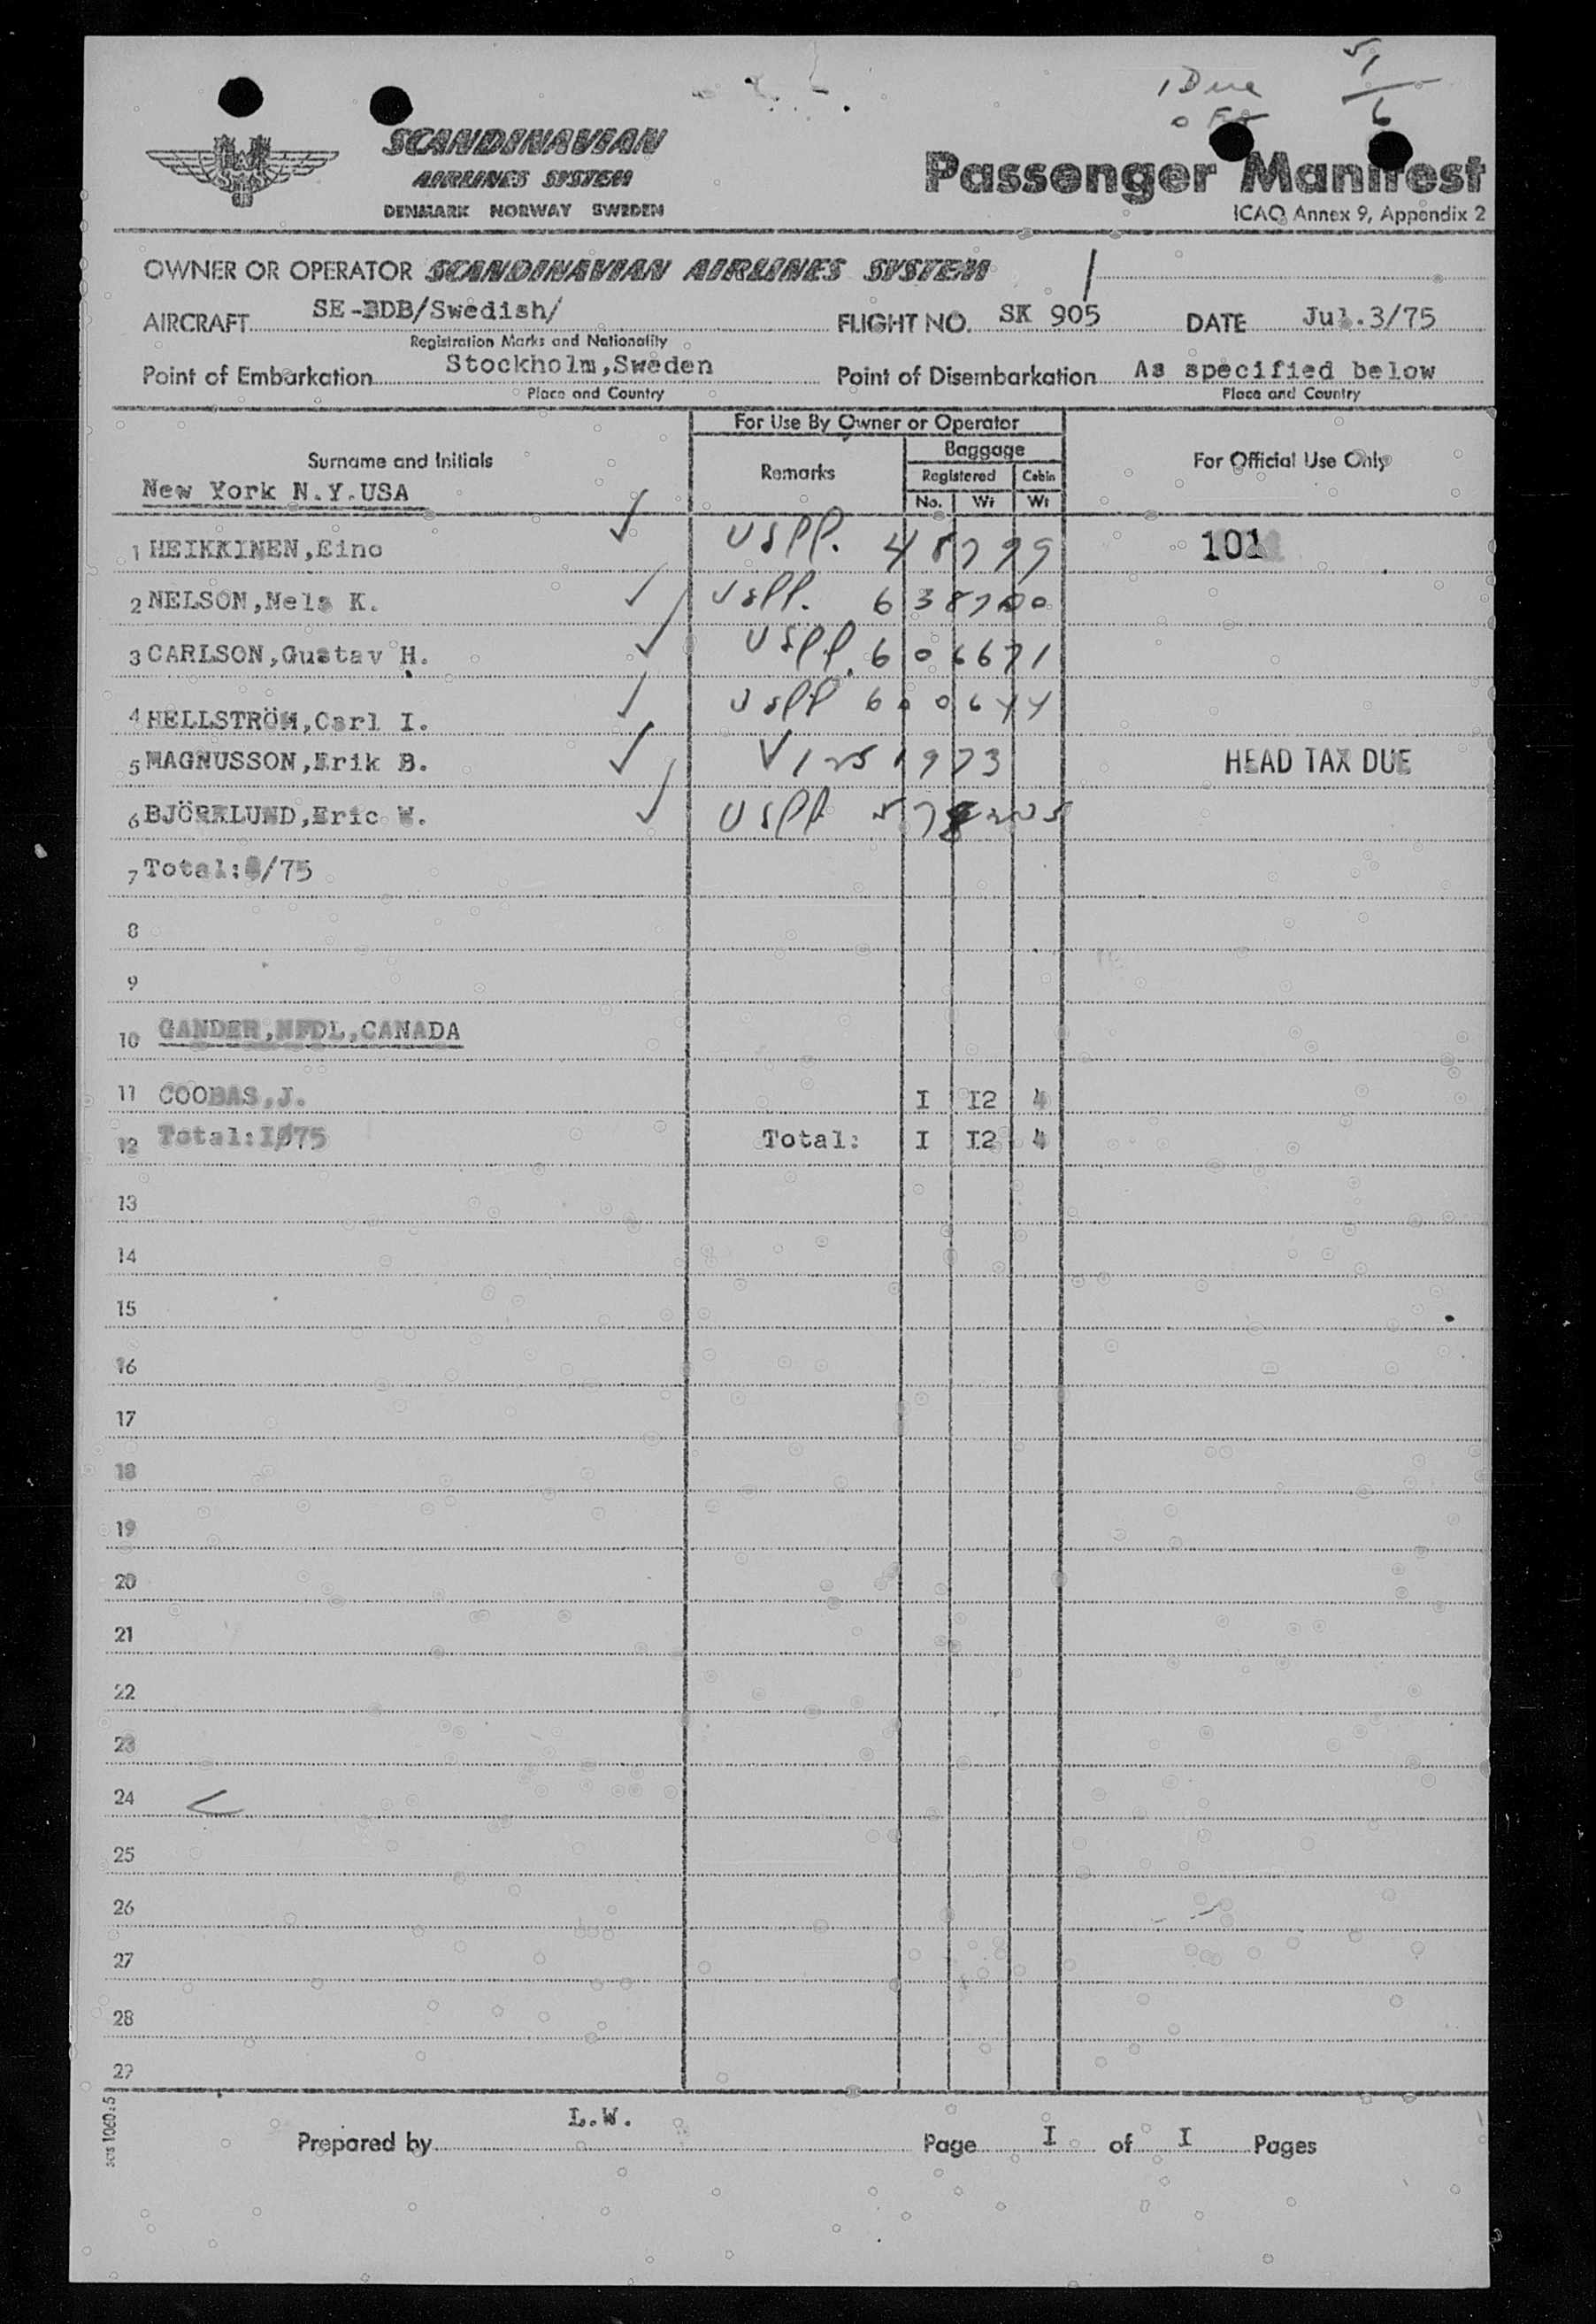 1 Due 5/
6
SCANDINAVIAN
AIRLINES SYSTEM
DENMARK NORWAY SWEDEN
Passenger Manifest
ICAO Annex 9, Appendix 2
OWNER OR OPERATOR SCANDINAVIAN AIRLINES SYSTEM
AIRCRAFT SE-BDB/Swedish/ FLIGHT NO. SK 905 DATE Jul.3/75
Registration Marks and Nationality
Point of Embarkation Stockholm,Sweden Point of Disembarkation As specified below
Place and Country Place and Country
For Use By Owner or Operator
Surname and Initials Remarks Baggage For Official Use Only
Registered Cabin
New York N.Y.USA No. Wt Wt
1 HEIKKINEN,Eino USPP. 48799 101
2 NELSON,Nels K. USPP. 638700
3 CARLSON,Gustav H. USPP. 606671
4 HELLSTRÖM,Carl I. USPP 600644
5 MAGNUSSON,Erik B. V1251973 HEAD TAX DUE
6 BJÖRKLUND,Eric W. USPP
7 Total: /75
8
9
10 GANDER,NFDL,CANADA
11 COOBAS,J. I I2 4
12 Total:I/75 Total: I I2 4
13
14
15
16
17
18
19
20
21
22
23
24
25
26
27
28
29
L.W.
Prepared by Page I of I Pages